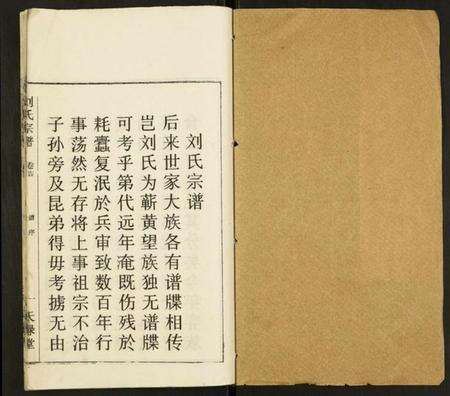 刘氏宗谱
后来世家大族各有谱牒相传
岂刘氏为蕲黄望族独无谱牒
可考乎第代远年淹既伤残於
耗蠹复泯於兵审致数百年行
事荡然无存将上事祖宗不治
子孙旁及昆弟得毋考掳无由
刘氏宗谱
卷首
谱序
一
天禄堂